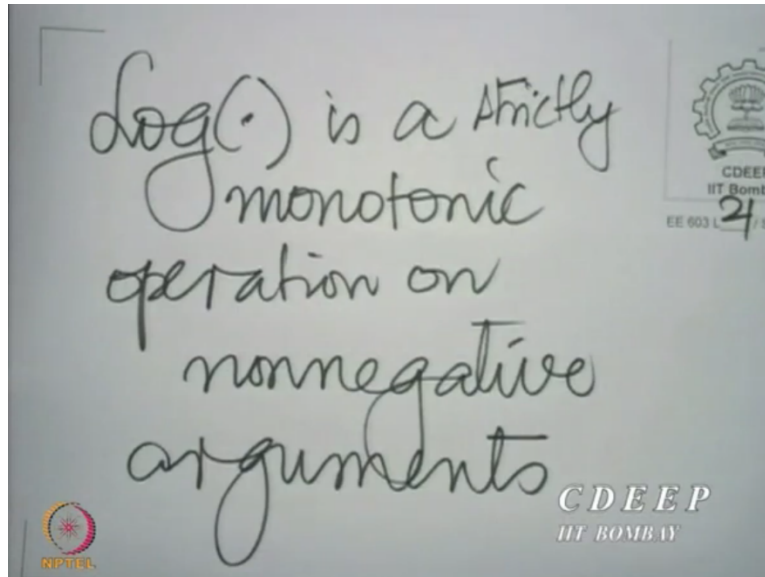 Log(·) is a strictly
monotonic
operation on
nonnegative
arguments
CDEEP
IIT Bomb
EE 603 L 21 / S
CDEEP
IIT BOMBAY
NPTEL